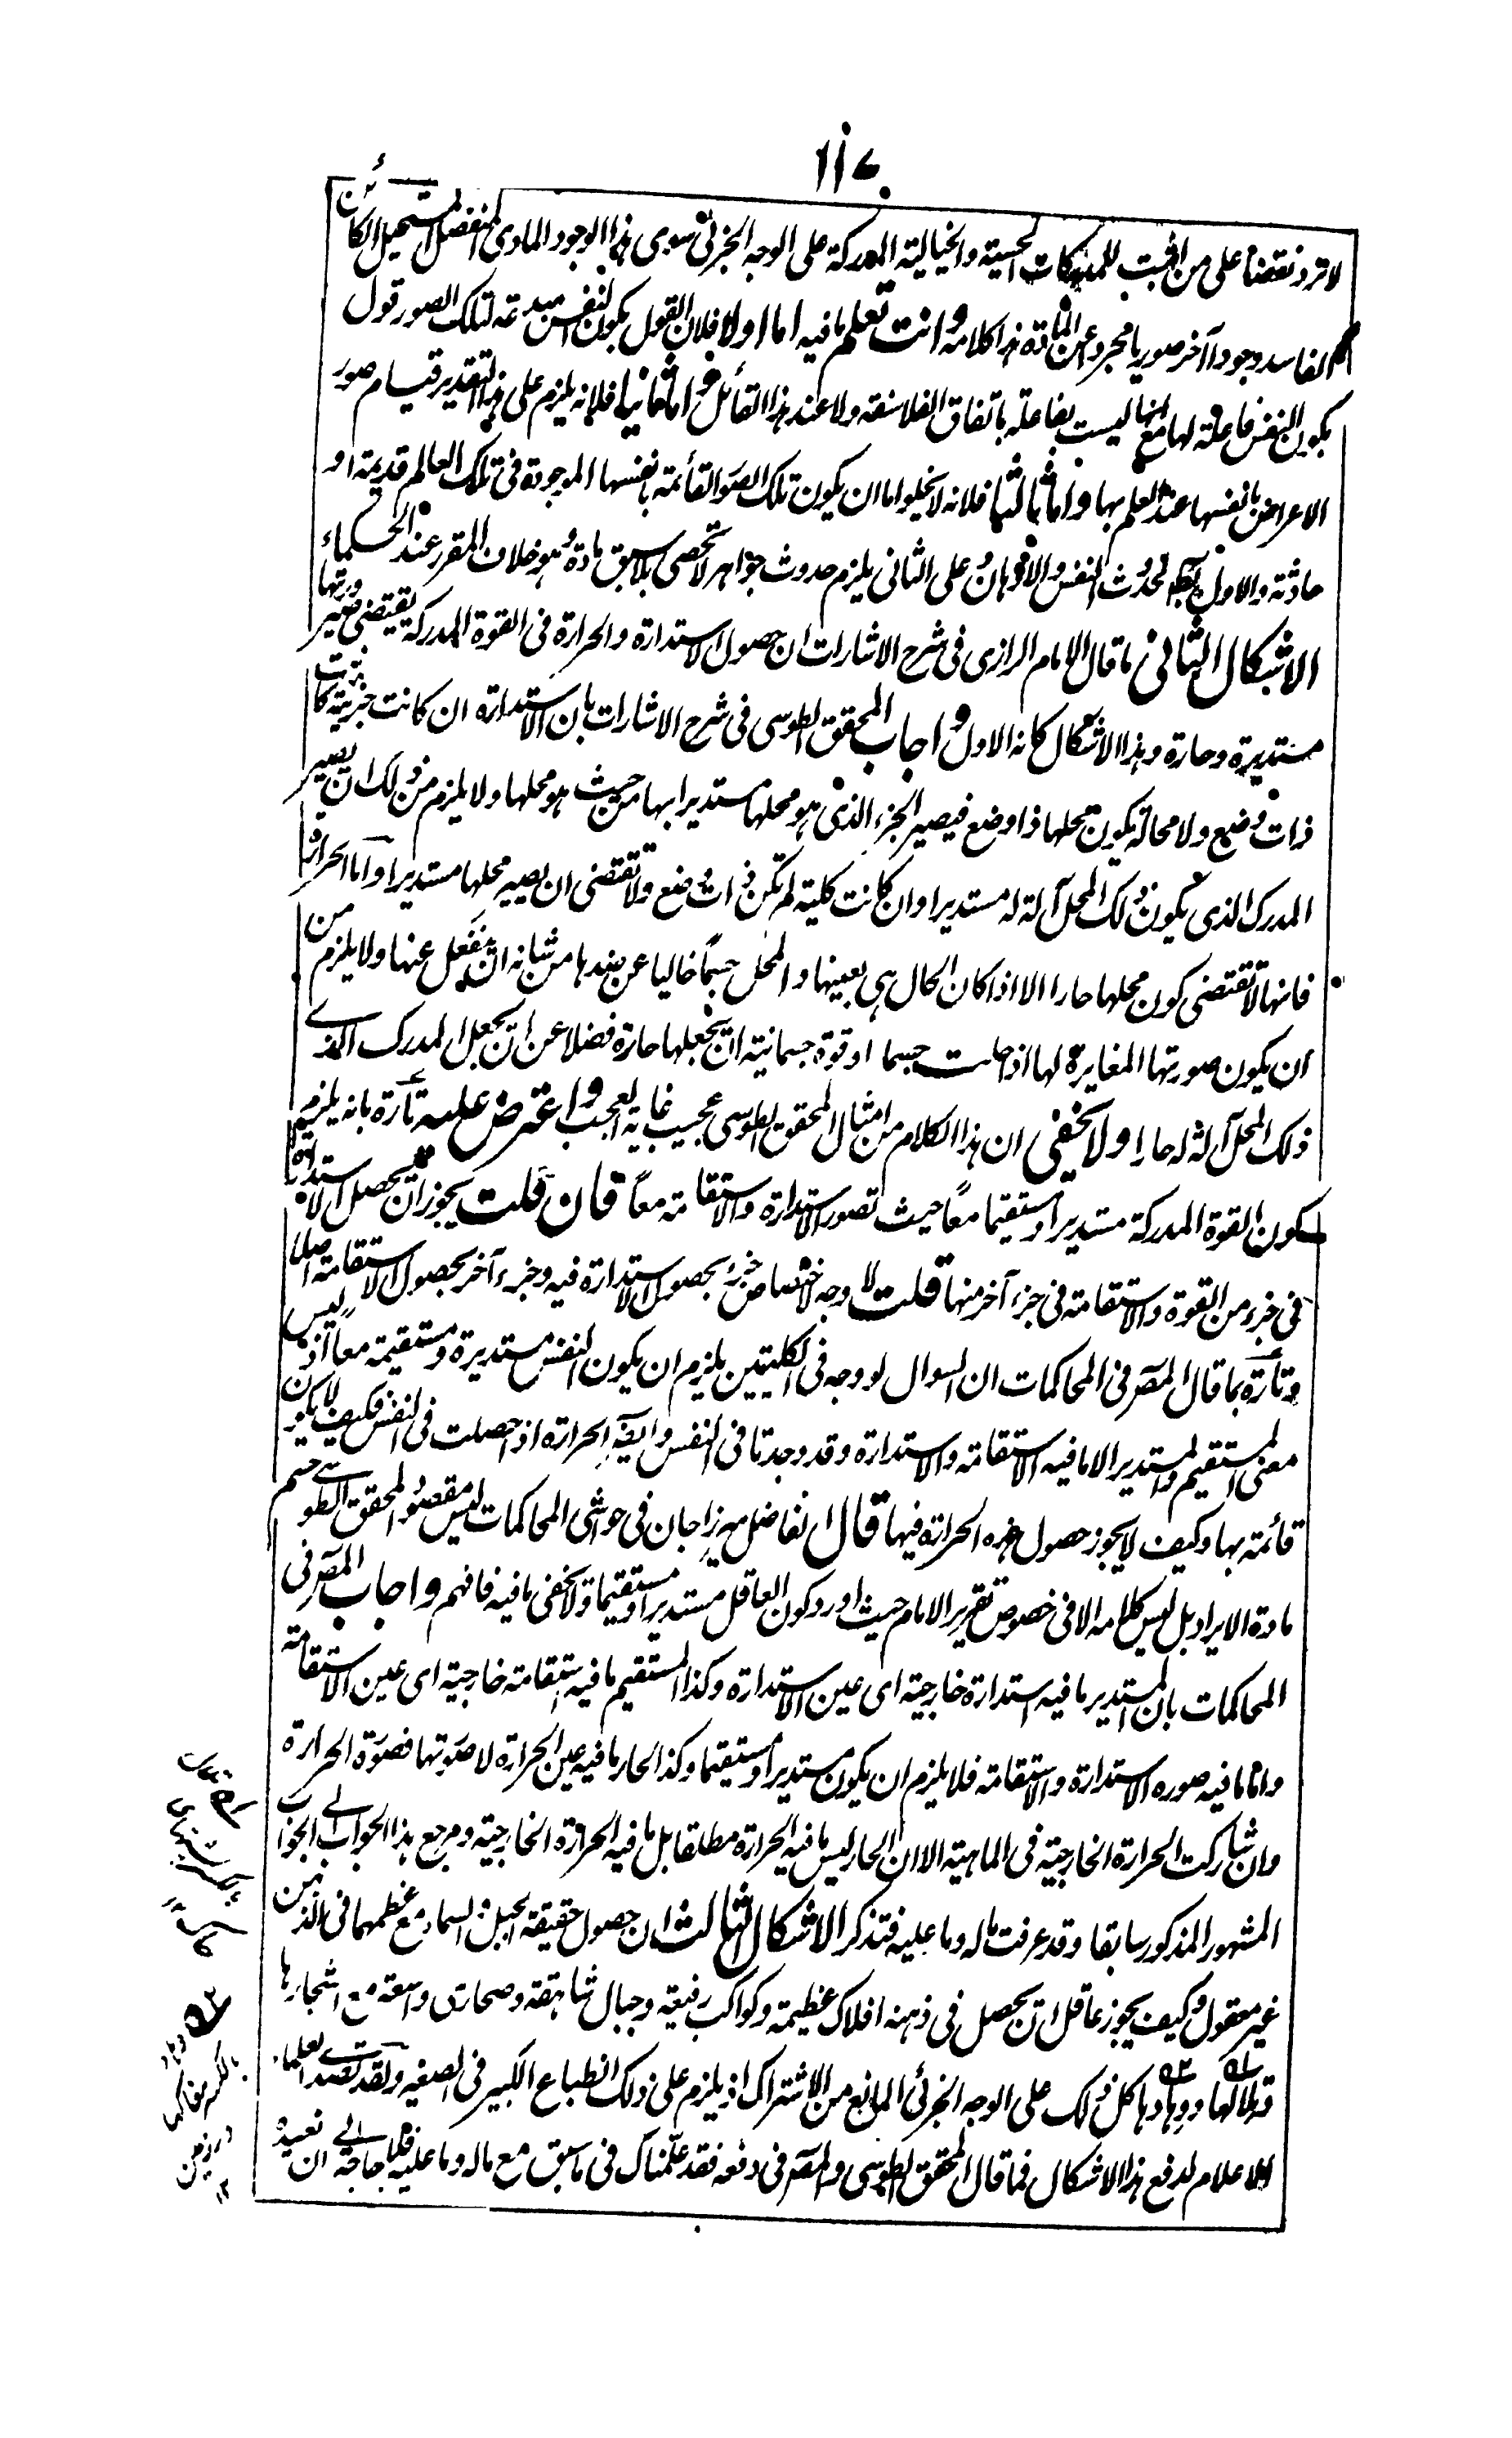 ١١٧
لا ترد نقضا على من اثبت للمدركات الحسية والخيالية المدركة على الوجه الجزئى سوى هذا الوجود المادى المنفصل المستحيل الكائن
الفاسد وجودا آخر صوريا مجردا عن المادة هذا كلامه وانت تعلم ما فيه اما اولا فلان القول بكون النفس مبدعة لتلك الصور قول
بكون النفس فاعلة لها مع انها ليست بفاعلة باتفاق الفلاسفة ولا عند هذا القائل واما ثانيا فلانه يلزم على هذا التقدير قيام صور
الاعراض بانفسها عند العلم بها واما ثالثا فلانه لا يخلوا اما ان يكون تلك الصور القائمة بانفسها الموجودة فى تلك العالم قديمة او
حادثة والاول باطل لحدوث النفس والاذهان وعلى الثانى يلزم حدوث جواهر لا تحصى بلا سبق مادة وهو خلاف المقرر عند الحكماء
الاشكال الثانى ما قال الامام الرازى فى شرح الاشارات ان حصول الاستدارة والحرارة فى القوة المدركة يقتضى صيرورتها
مستديرة وحارة وهذا الاشكال كانه الاول واجاب المحقق الطوسى فى شرح الاشارات بان الاستدارة ان كانت جزئية كانت
ذات وضع ولا محالة يكون محلها ذا وضع فيصير الجزء الذى هو محلها مستديرا بها من حيث هو محلها ولا يلزم من ذلك ان يصير
المدرك الذى يكون ذلك المحل آلة له مستديرا وان كانت كلية لم تكن ذات وضع ولا تقتضى ان يصير محلها مستديرا واما الحرارة
فانها لا تقتضى كون محلها حارا الا اذا كان الحال هى بعينها والمحل جسما خاليا عن ضدها من شانه ان ينفعل عنها ولا يلزم من
ان يكون صورتها المغايرة لها اذا حلت جسما او قوة جسمانية ان تجعلها حارة فضلا عن ان تجعل المدرك الذى
ذلك المحل آلة له حارا ولا يخفى ان هذا الكلام من امثال المحقق الطوسى عجيب غاية العجب واعترض عليه تارة بانه يلزم
كون القوة المدركة مستديرا ومستقيما معا حيث تصور الاستدارة والاستقامة معا فان قلت يجوز ان يحصل الاستدارة
فى جزء من القوة والاستقامة فى جزء آخر منها قلت لا وجه لاختصاص جزء بحصول الاستدارة فيه وجزء آخر بحصول الاستقامة اصلا
وتارة بما قال المص فى المحاكمات ان السوال لو وجه فى الكليتين يلزم ان يكون النفس مستديرة ومستقيمة معا اذ ليس
معنى المستقيم والمستدير الا ما فيه الاستقامة والاستدارة وقد وجدتا فى النفس وايضا الحرارة اذا حصلت فى النفس فكيف لا يكون
قائمة بها وكيف لا يجوز حصول هذه الحرارة فيها قال الفاضل ميرزا جان فى حواشى المحاكمات ليس مقصود المحقق الطوسى حسم
مادة الايراد بل ليس كلامه الا فى خصوص تقرير الامام حيث اورد كون العاقل مستديرا ومستقيما ولا يخفى ما فيه فافهم واجاب المص فى
المحاكمات بان المستدير ما فيه استدارة خارجية اى عين الاستدارة وكذا المستقيم ما فيه استقامة خارجية اى عين الاستقامة
واما ما فيه صورة الاستدارة والاستقامة فلا يلزم ان يكون مستديرا ومستقيما وكذا الحار ما فيه عين الحرارة لا صورتها فصورة الحرارة
وان شاركت الحرارة الخارجية فى الماهية الا ان الحار ليس ما فيه الحرارة مطلقا بل ما فيه الحرارة الخارجية ومرجع هذا الجواب الى الجواب
المشهور المذكور سابقا وقد عرفت ما له وما عليه فتذكر الاشكال الثالث ان حصول حقيقة الجبل والسماء مع عظمهما فى الذهن
غير معقول وكيف يجوز عاقل ان يحصل فى ذهنه افلاك عظيمة وكواكب رفيعة وجبال شاهقة وصحارى واسعة مع اشجارها
وتلالها ووهادها كل ذلك على الوجه الجزئى المانع من الاشتراك اذ يلزم على ذلك انطباع الكبير فى الصغير ولقد تصدت العلماء
الاعلام لدفع هذا الاشكال فما قال المحقق الطوسى والمص فى دفعه فقد علمناك فى ما سبق مع ما له وما عليه فلا حاجة الى ان نعيده